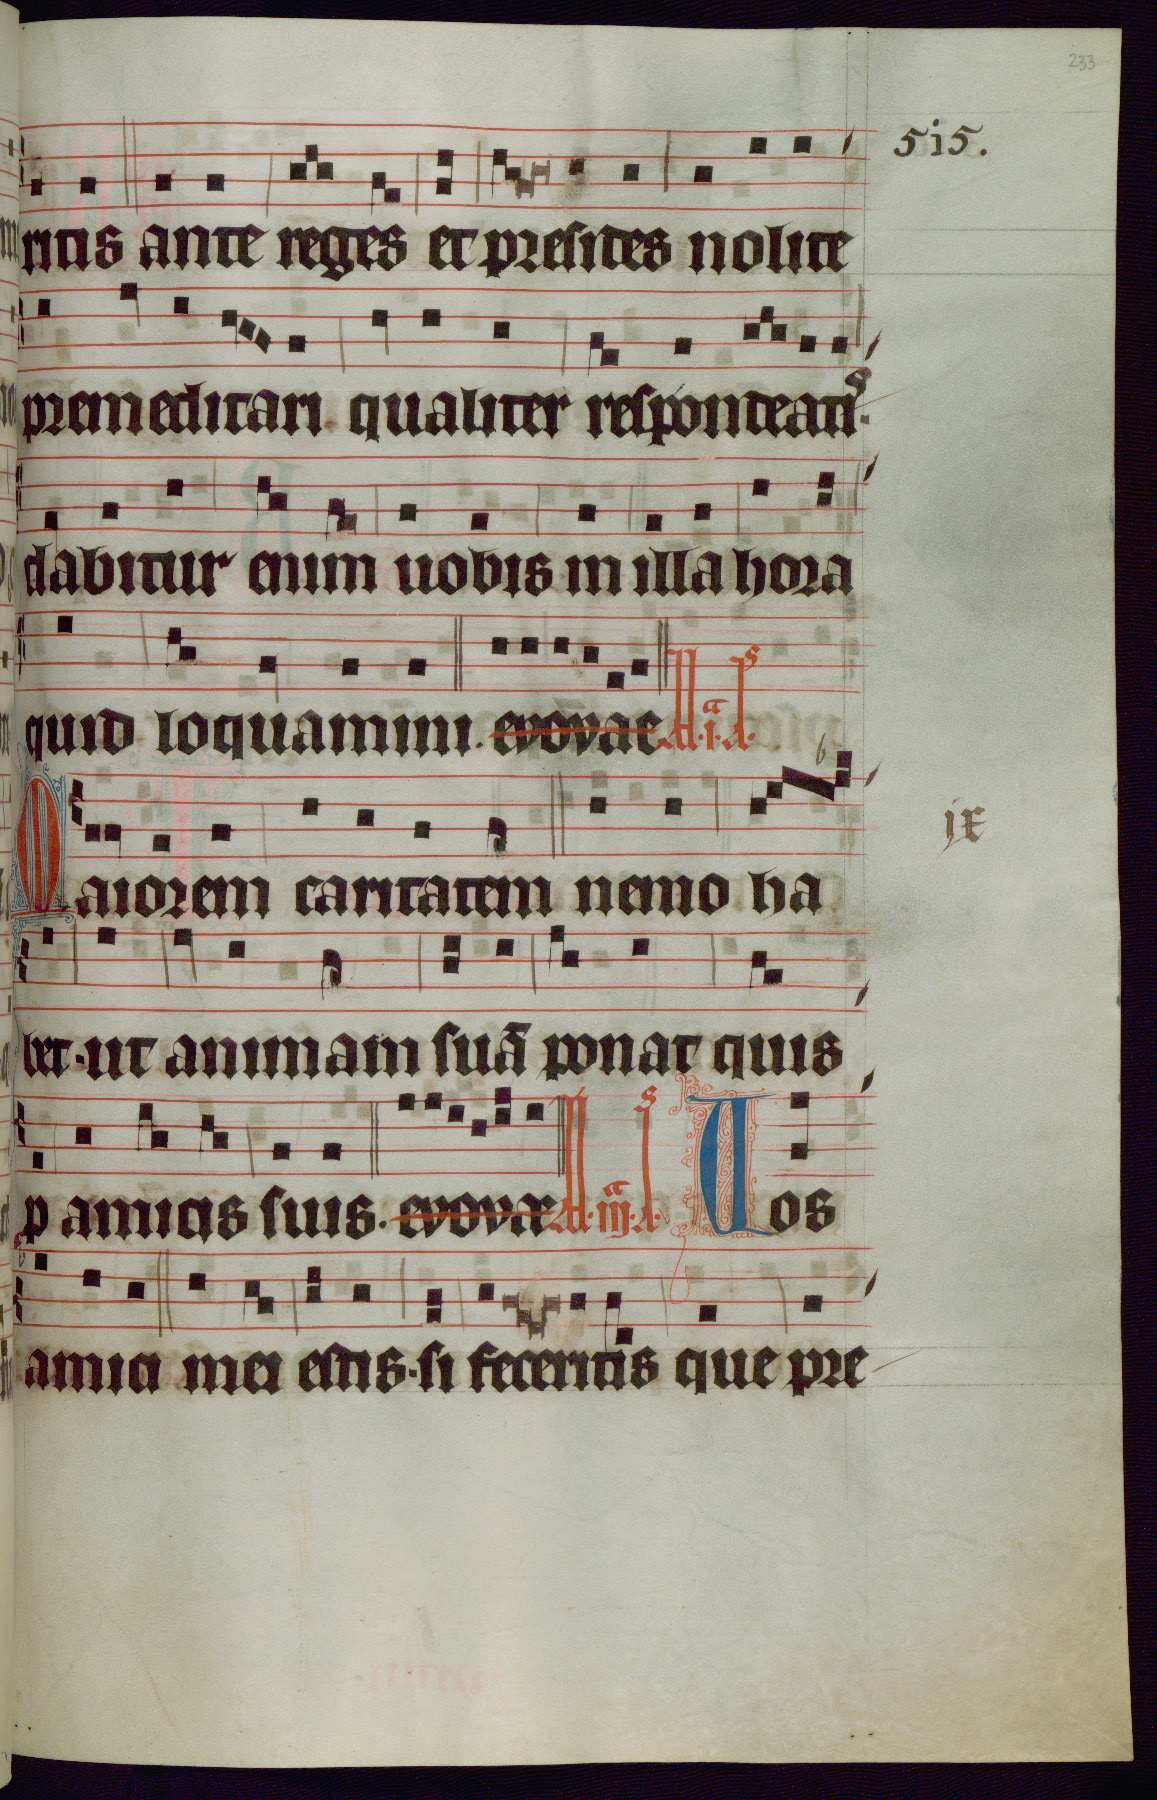 233
515.
ritis ante reges et presides nolite
premeditari qualiter respondeatis.
dabitur enim uobis in illa hora
quid loquamini. evovae A. i. A.
ix
Maiorem caritatem nemo ha
bet. ut animam suā ponat quis
p amicis suis. evovae A. iij. A. Vos
amici mei estis. si feceritis que pre